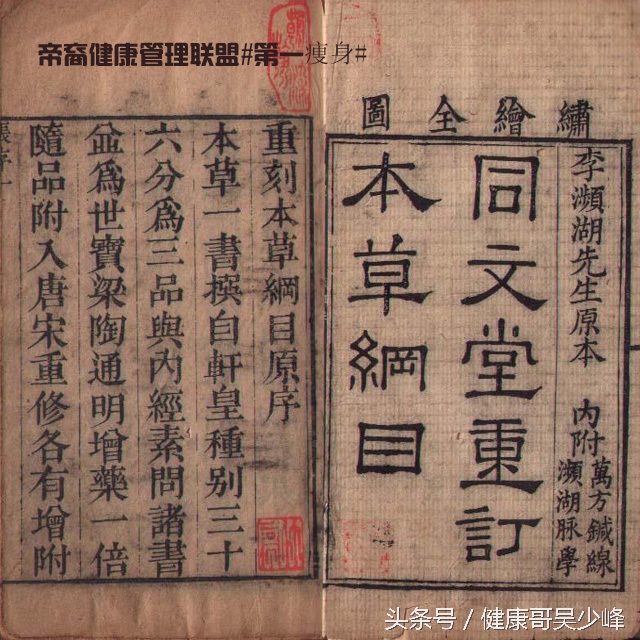 帝裔健康管理联盟#第一瘦身#
繡繪全圖
李瀕湖先生原本
內附
萬方鍼線
瀕湖脉學
同文堂重訂
本草綱目
重刻本草綱目原序
本草一書撰自軒皇種別三十
六分爲三品與內經素問諸書
並爲世寶梁陶通明增藥一倍
隨品附入唐宋重修各有增附
头条号 / 健康哥吴少峰